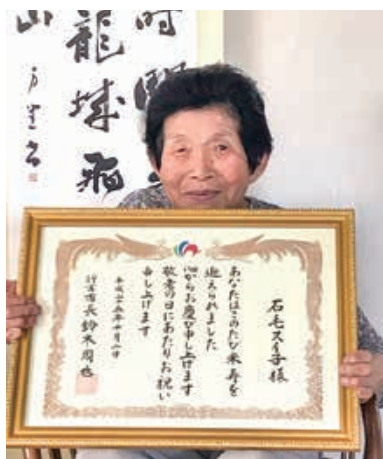 時
龍城
山
石毛スイ子様
あなたはこのたび米寿を
迎えられました
心からお慶び申し上げます
敬老の日にあたりお祝い
申し上げます
平成二十 年十月二日
行方市長 鈴木周也